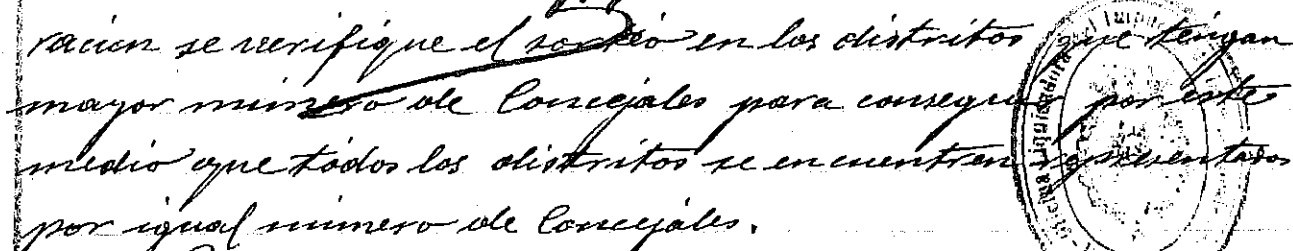 racion se verifique el sorteo en los distritos que tengan
mayor número de Concejales para conseguir por este
medio que todos los distritos se encuentren representados
por igual número de Concejales.